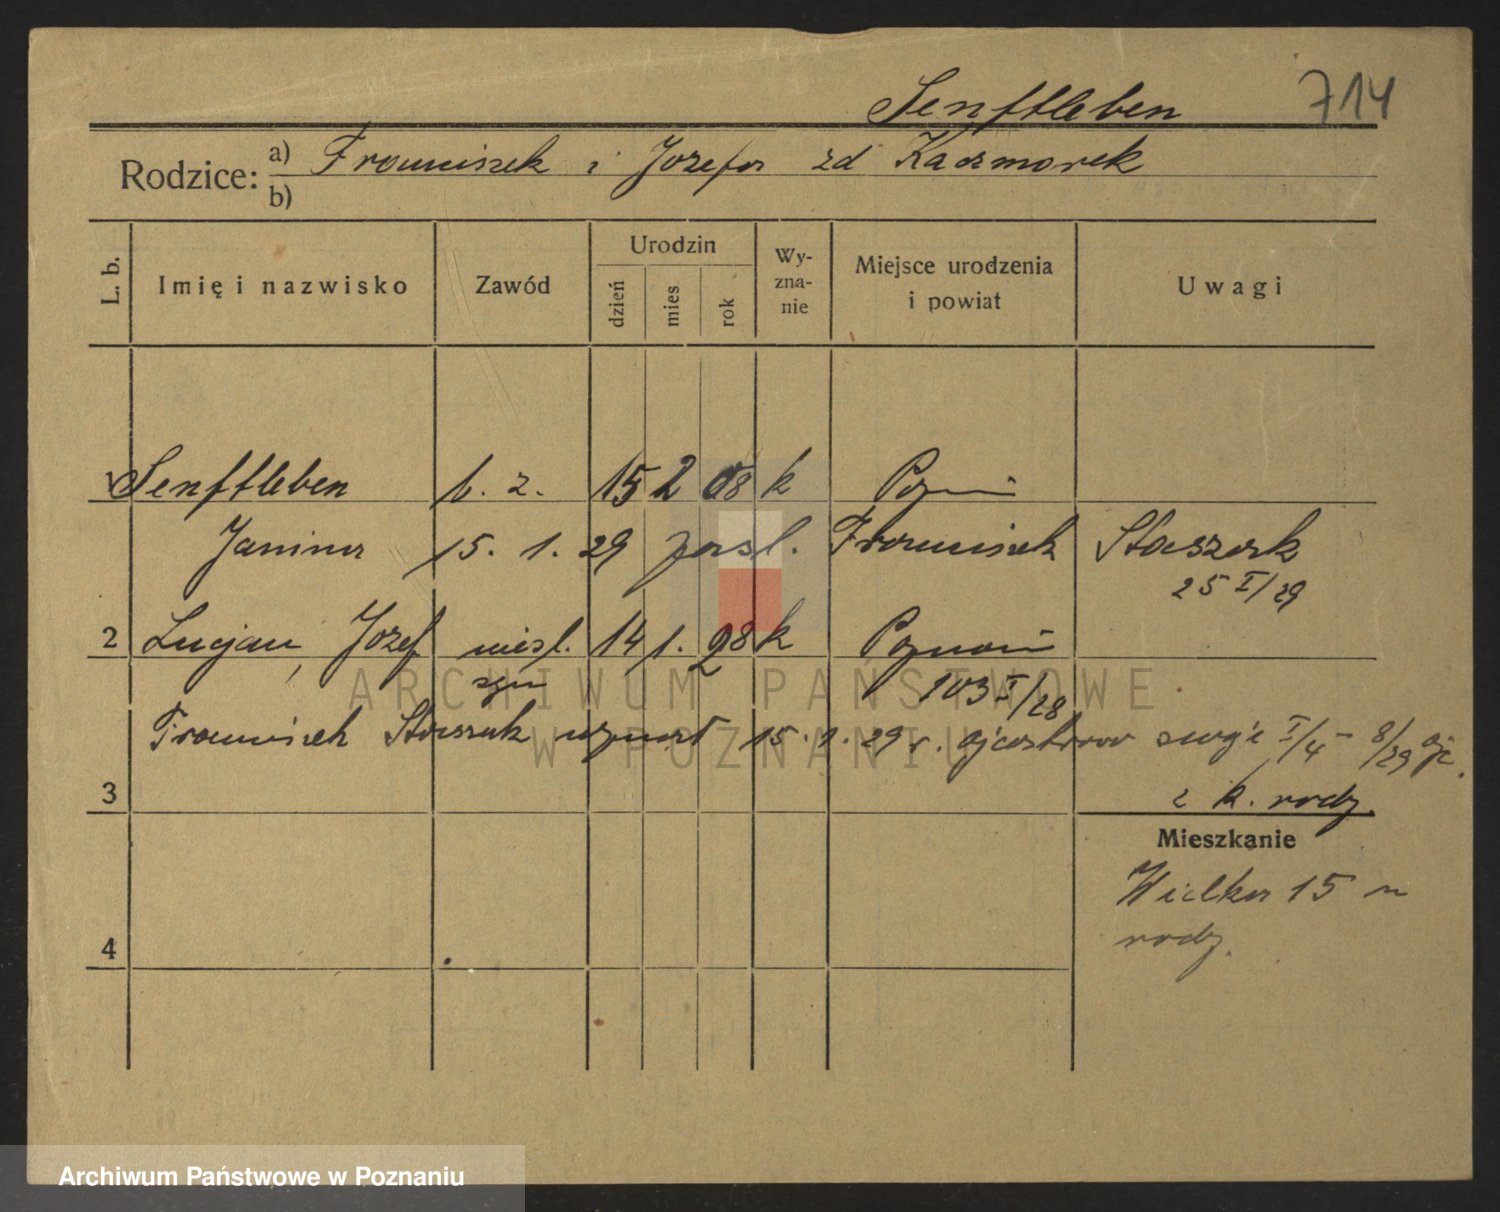 Senftleben 714
Rodzice: a) Franciszek i Józefa zd Kaczmarek
b)
L. b.
Imię i nazwisko
Zawód
Urodzin
dzień
mies
rok
Wy-
zna-
nie
Miejsce urodzenia
i powiat
Uwagi
1 Senftleben b. z. 15 2 08 k Pozn
Janina 15. 1. 29 zaśl. Franciszek Staszak
25 I/29
2 Lucjan, Józef nieśl. 14 1. 28 k Poznań
syn 103 I/28
Franciszek Staszak uznał 15. 1. 29 r. ojcostwo swoje I/4 - 8/29
3 z k. rodz.
Mieszkanie
Wielka 15 u
rodz.
4
ARCHIWUM PAŃSTWOWE
W POZNANIU
Archiwum Państwowe w Poznaniu